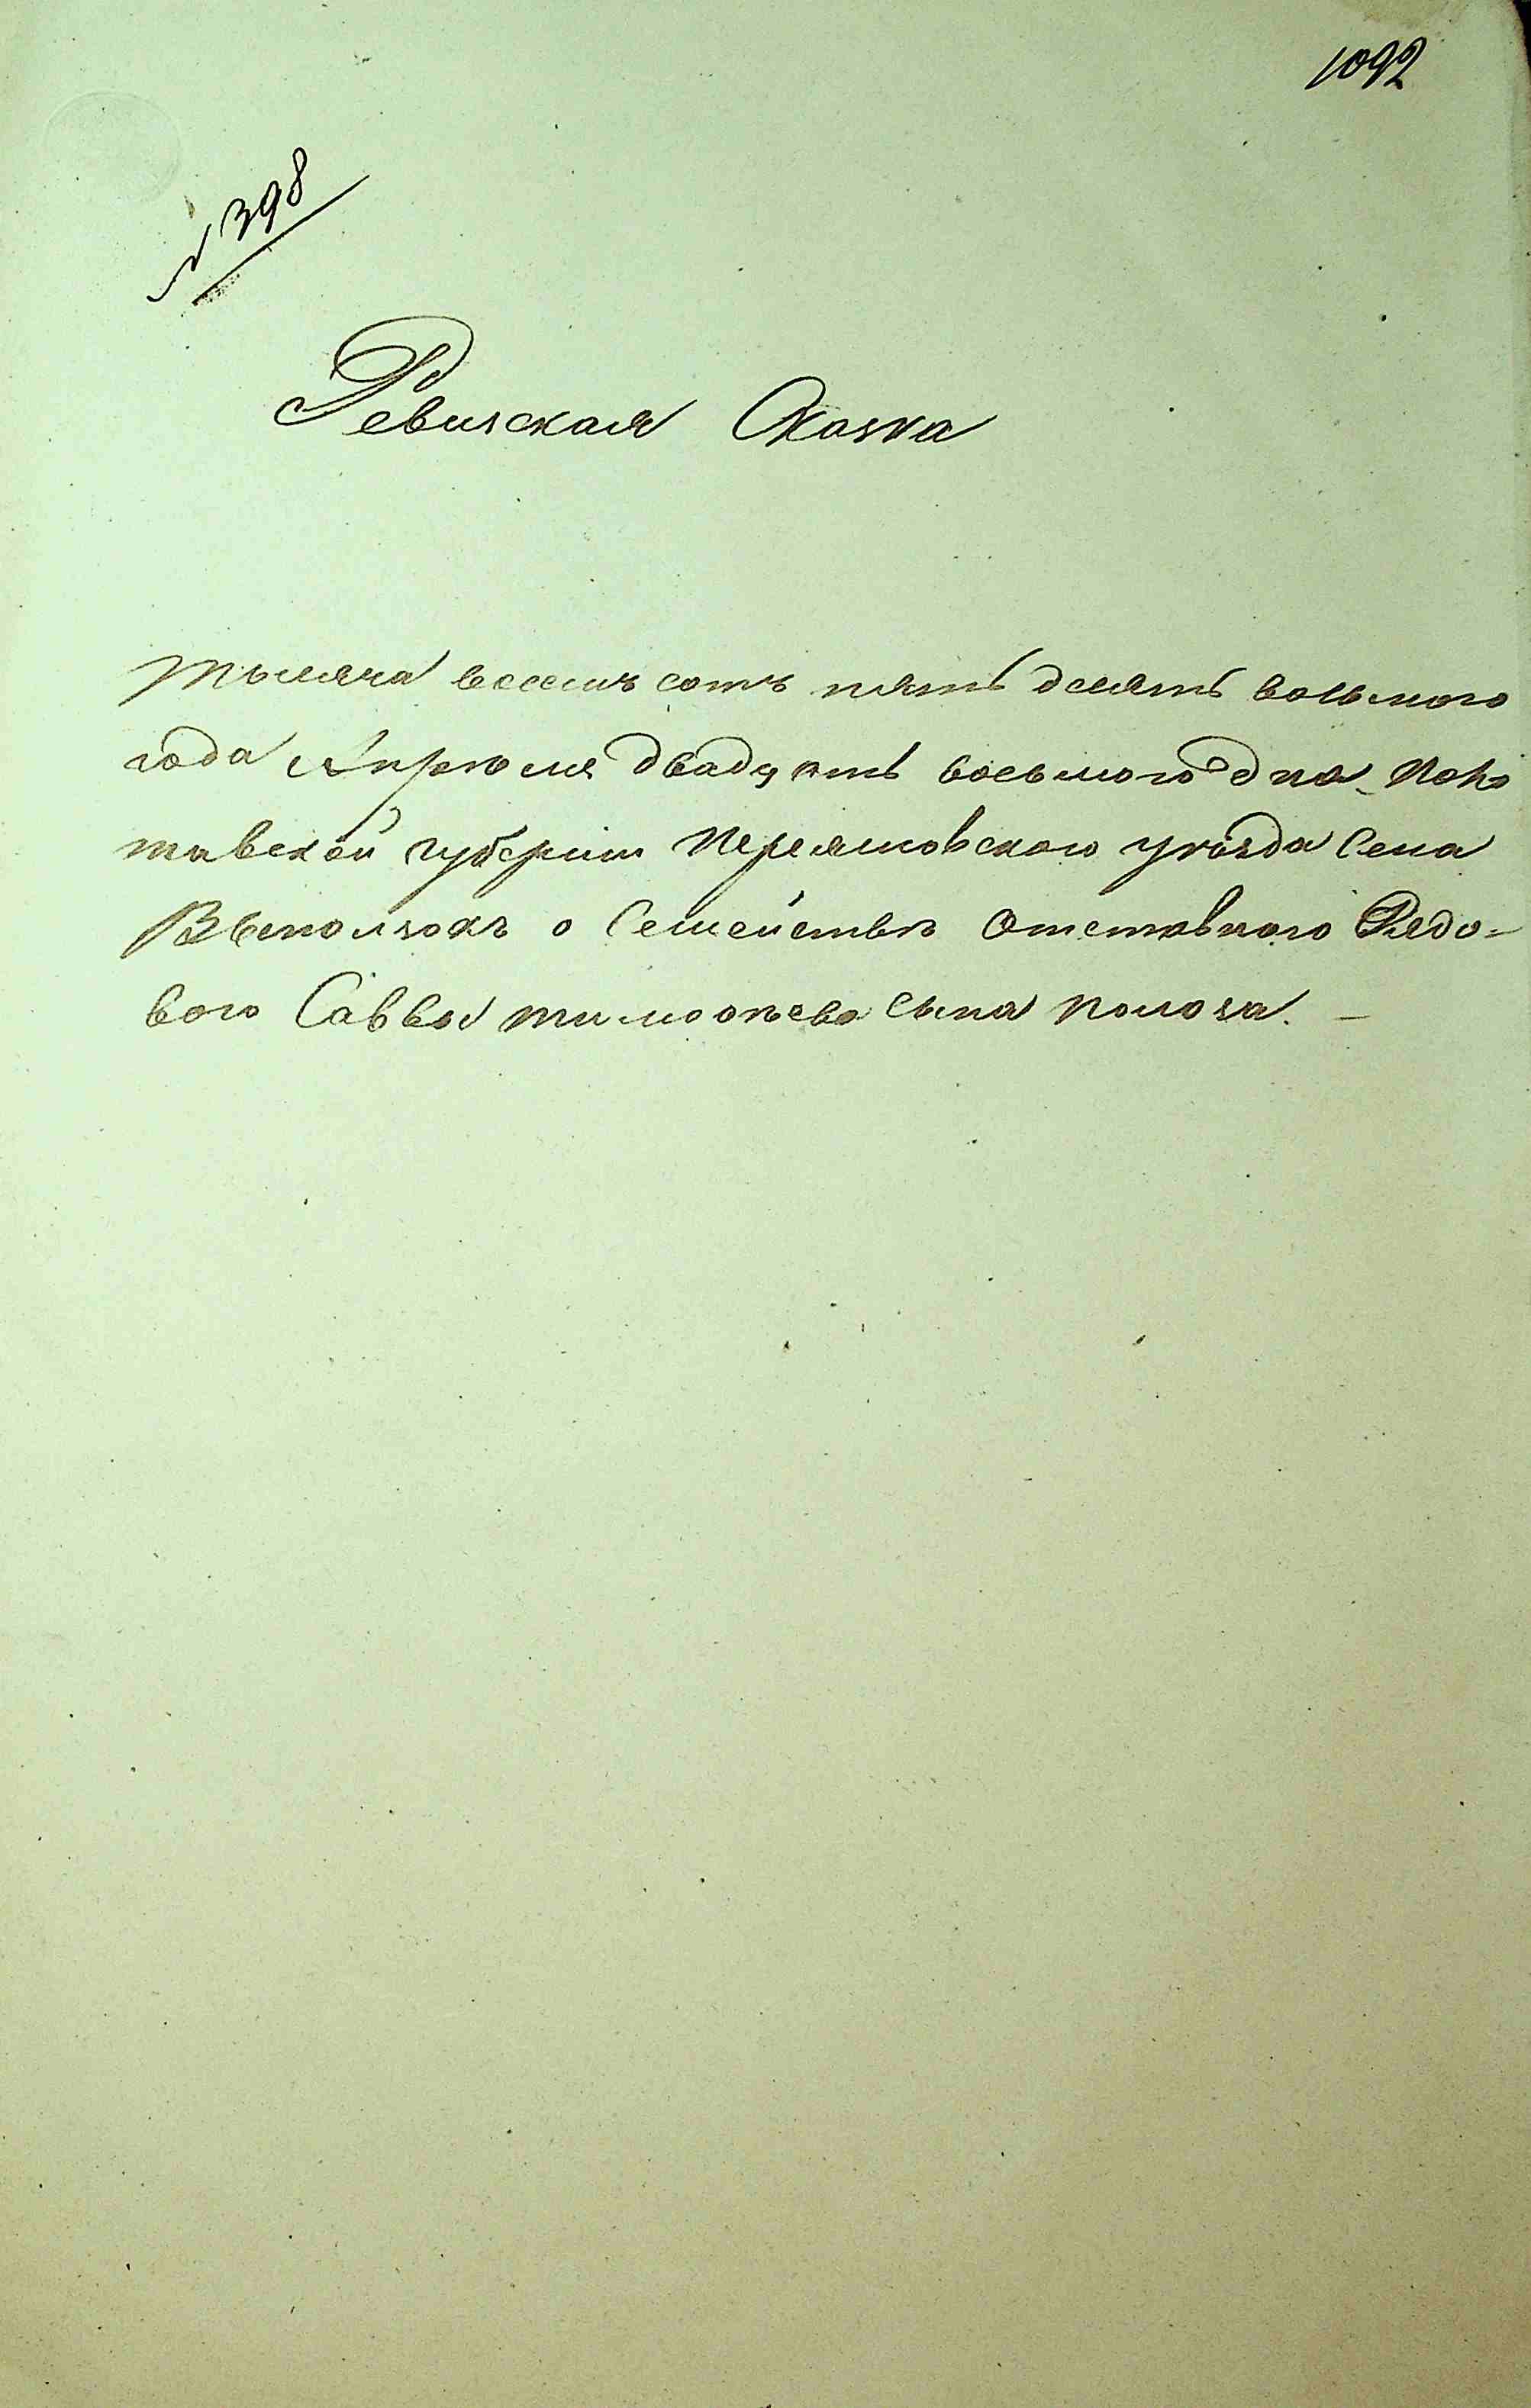 1092
№ 398
Ревизская Сказка
Тысяча восемъ сотъ пять десять восьмого
года Апреля двадцять восьмого дня Пол
тавской губернии Переяславского уезда Села
о Семействе Отставного Рядо-
вого Саввы Тимофеева сына Полоза. —